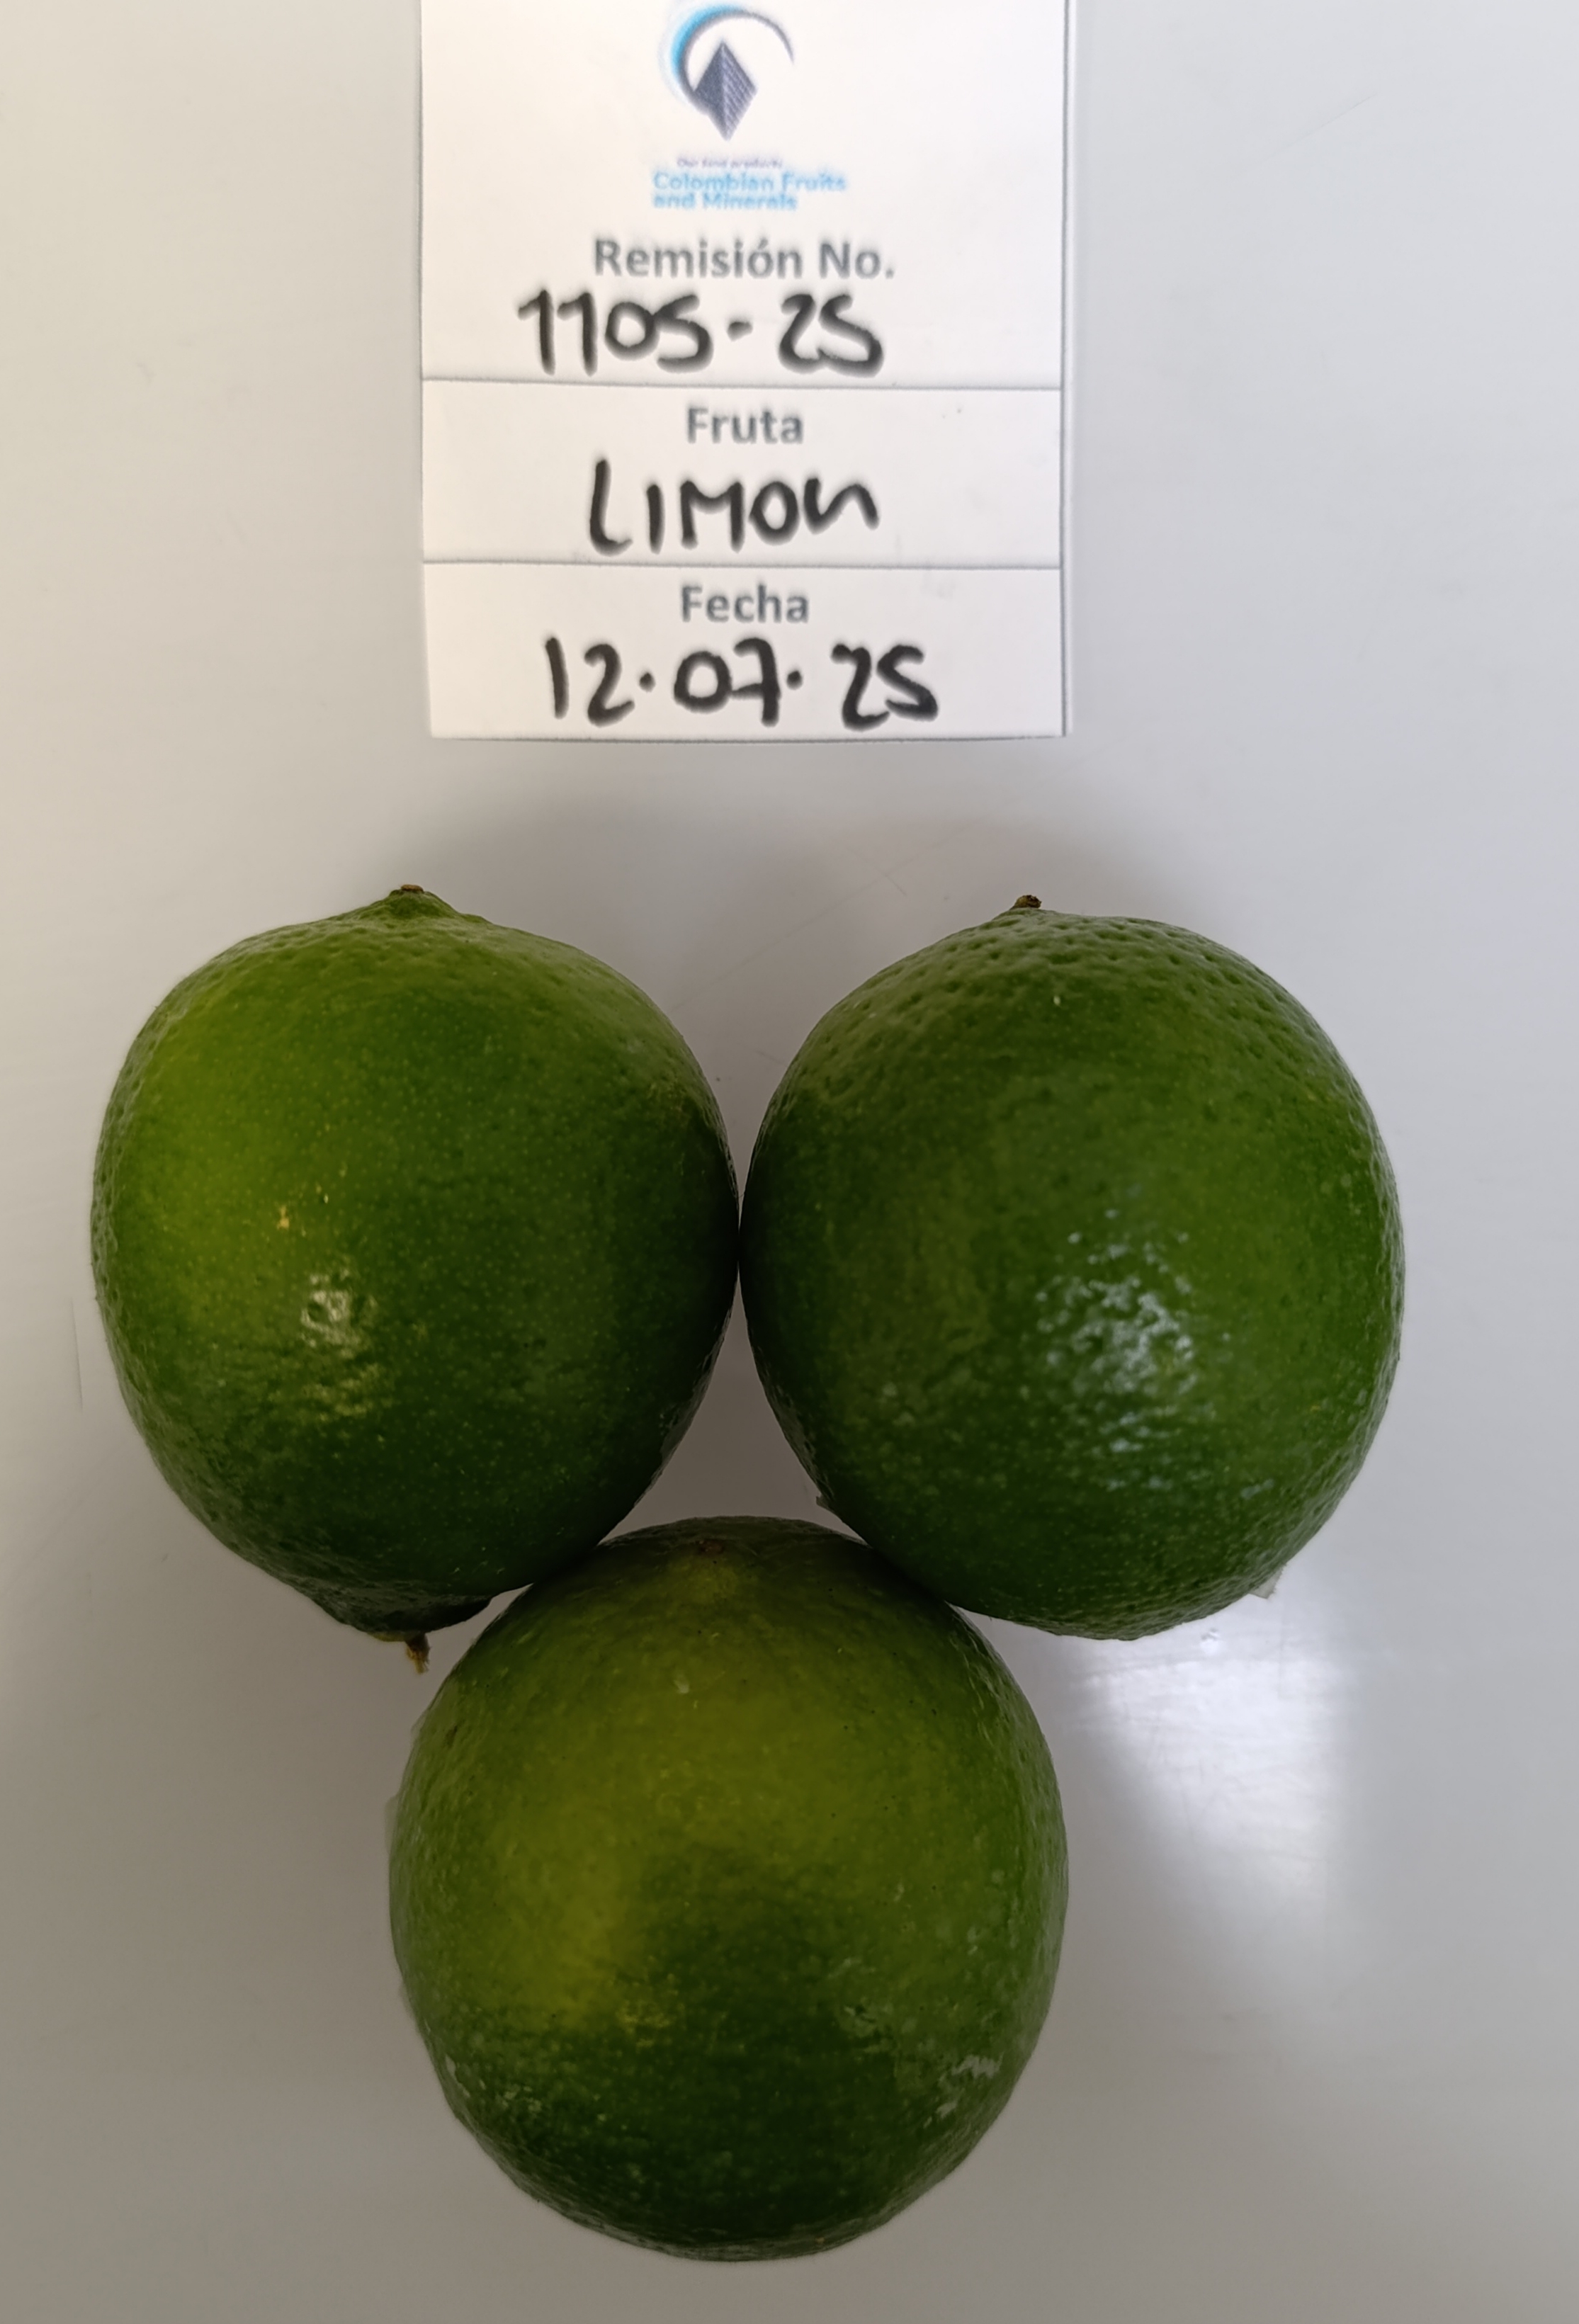 Our best products
Colombian Fruits
and Minerals
Remisión No.
1105-25
Fruta
LIMON
Fecha
12·07·25